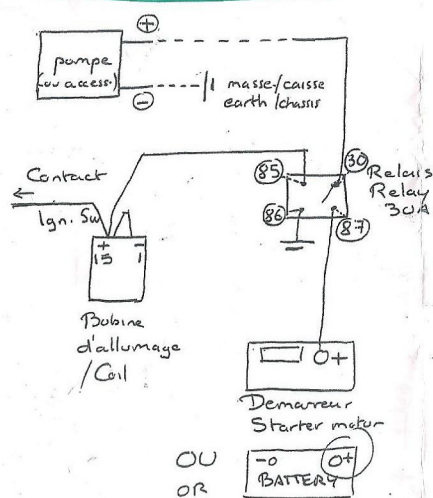 +
pompe
(ou access.)
-
masse/caisse
earth/chassis
Contact
Ign. Sw
85
30
86
87
Relais
Relay
30A
+ -
15 1
Bobine
d'allumage
/Coil
O+
Demarreur
Starter motor
OU
OR
-o O+
BATTERY